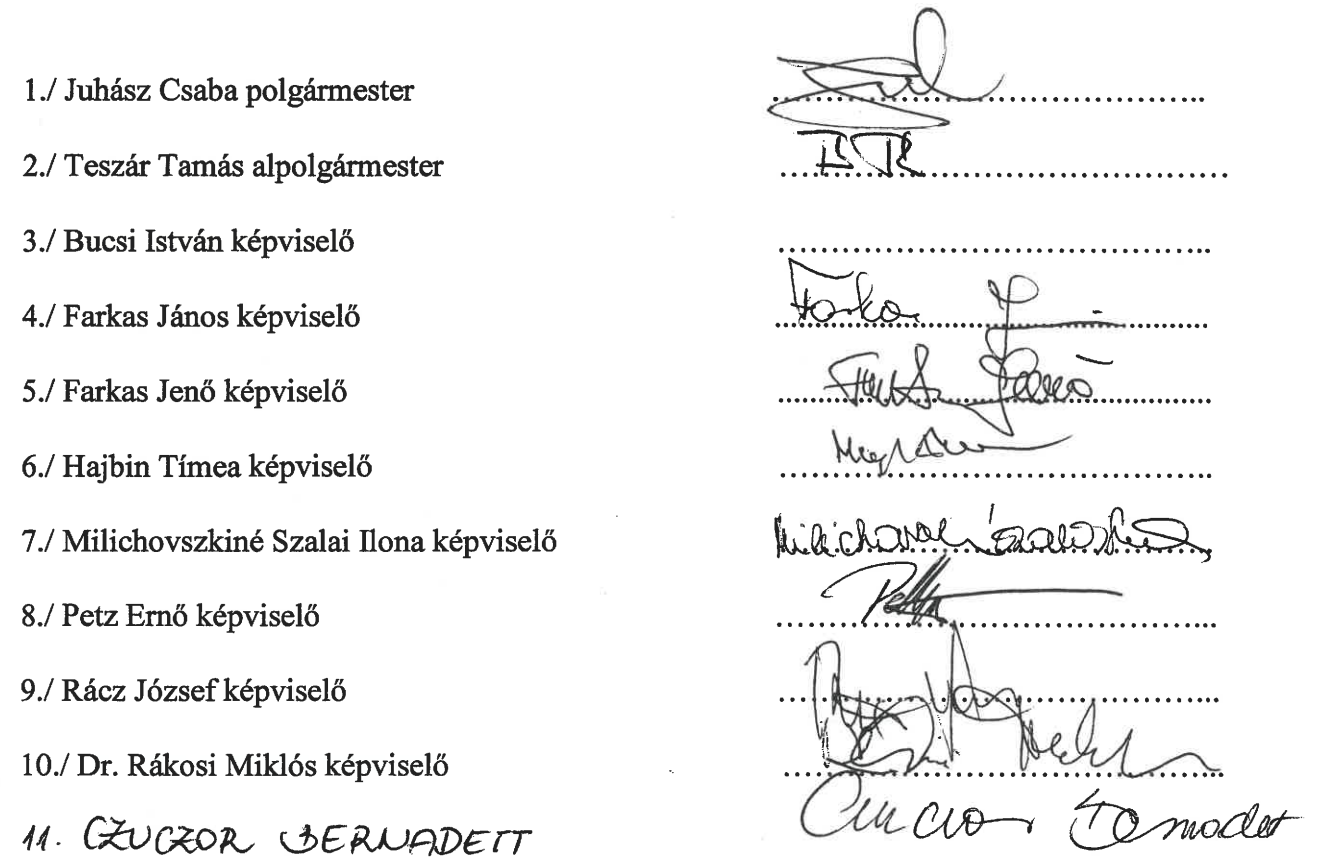 1./ Juhász Csaba polgármester ..............................
2./ Teszár Tamás alpolgármester ..............................
3./ Bucsi István képviselő ..............................
4./ Farkas János képviselő Farkas J
5./ Farkas Jenő képviselő Farkas Jenő
6./ Hajbin Tímea képviselő ..............................
7./ Milichovszkiné Szalai Ilona képviselő ..............................
8./ Petz Ernő képviselő Petz
9./ Rácz József képviselő ..............................
10./ Dr. Rákosi Miklós képviselő ..............................
11. CZUCZOR BERNADETT Czuczor Bernadett